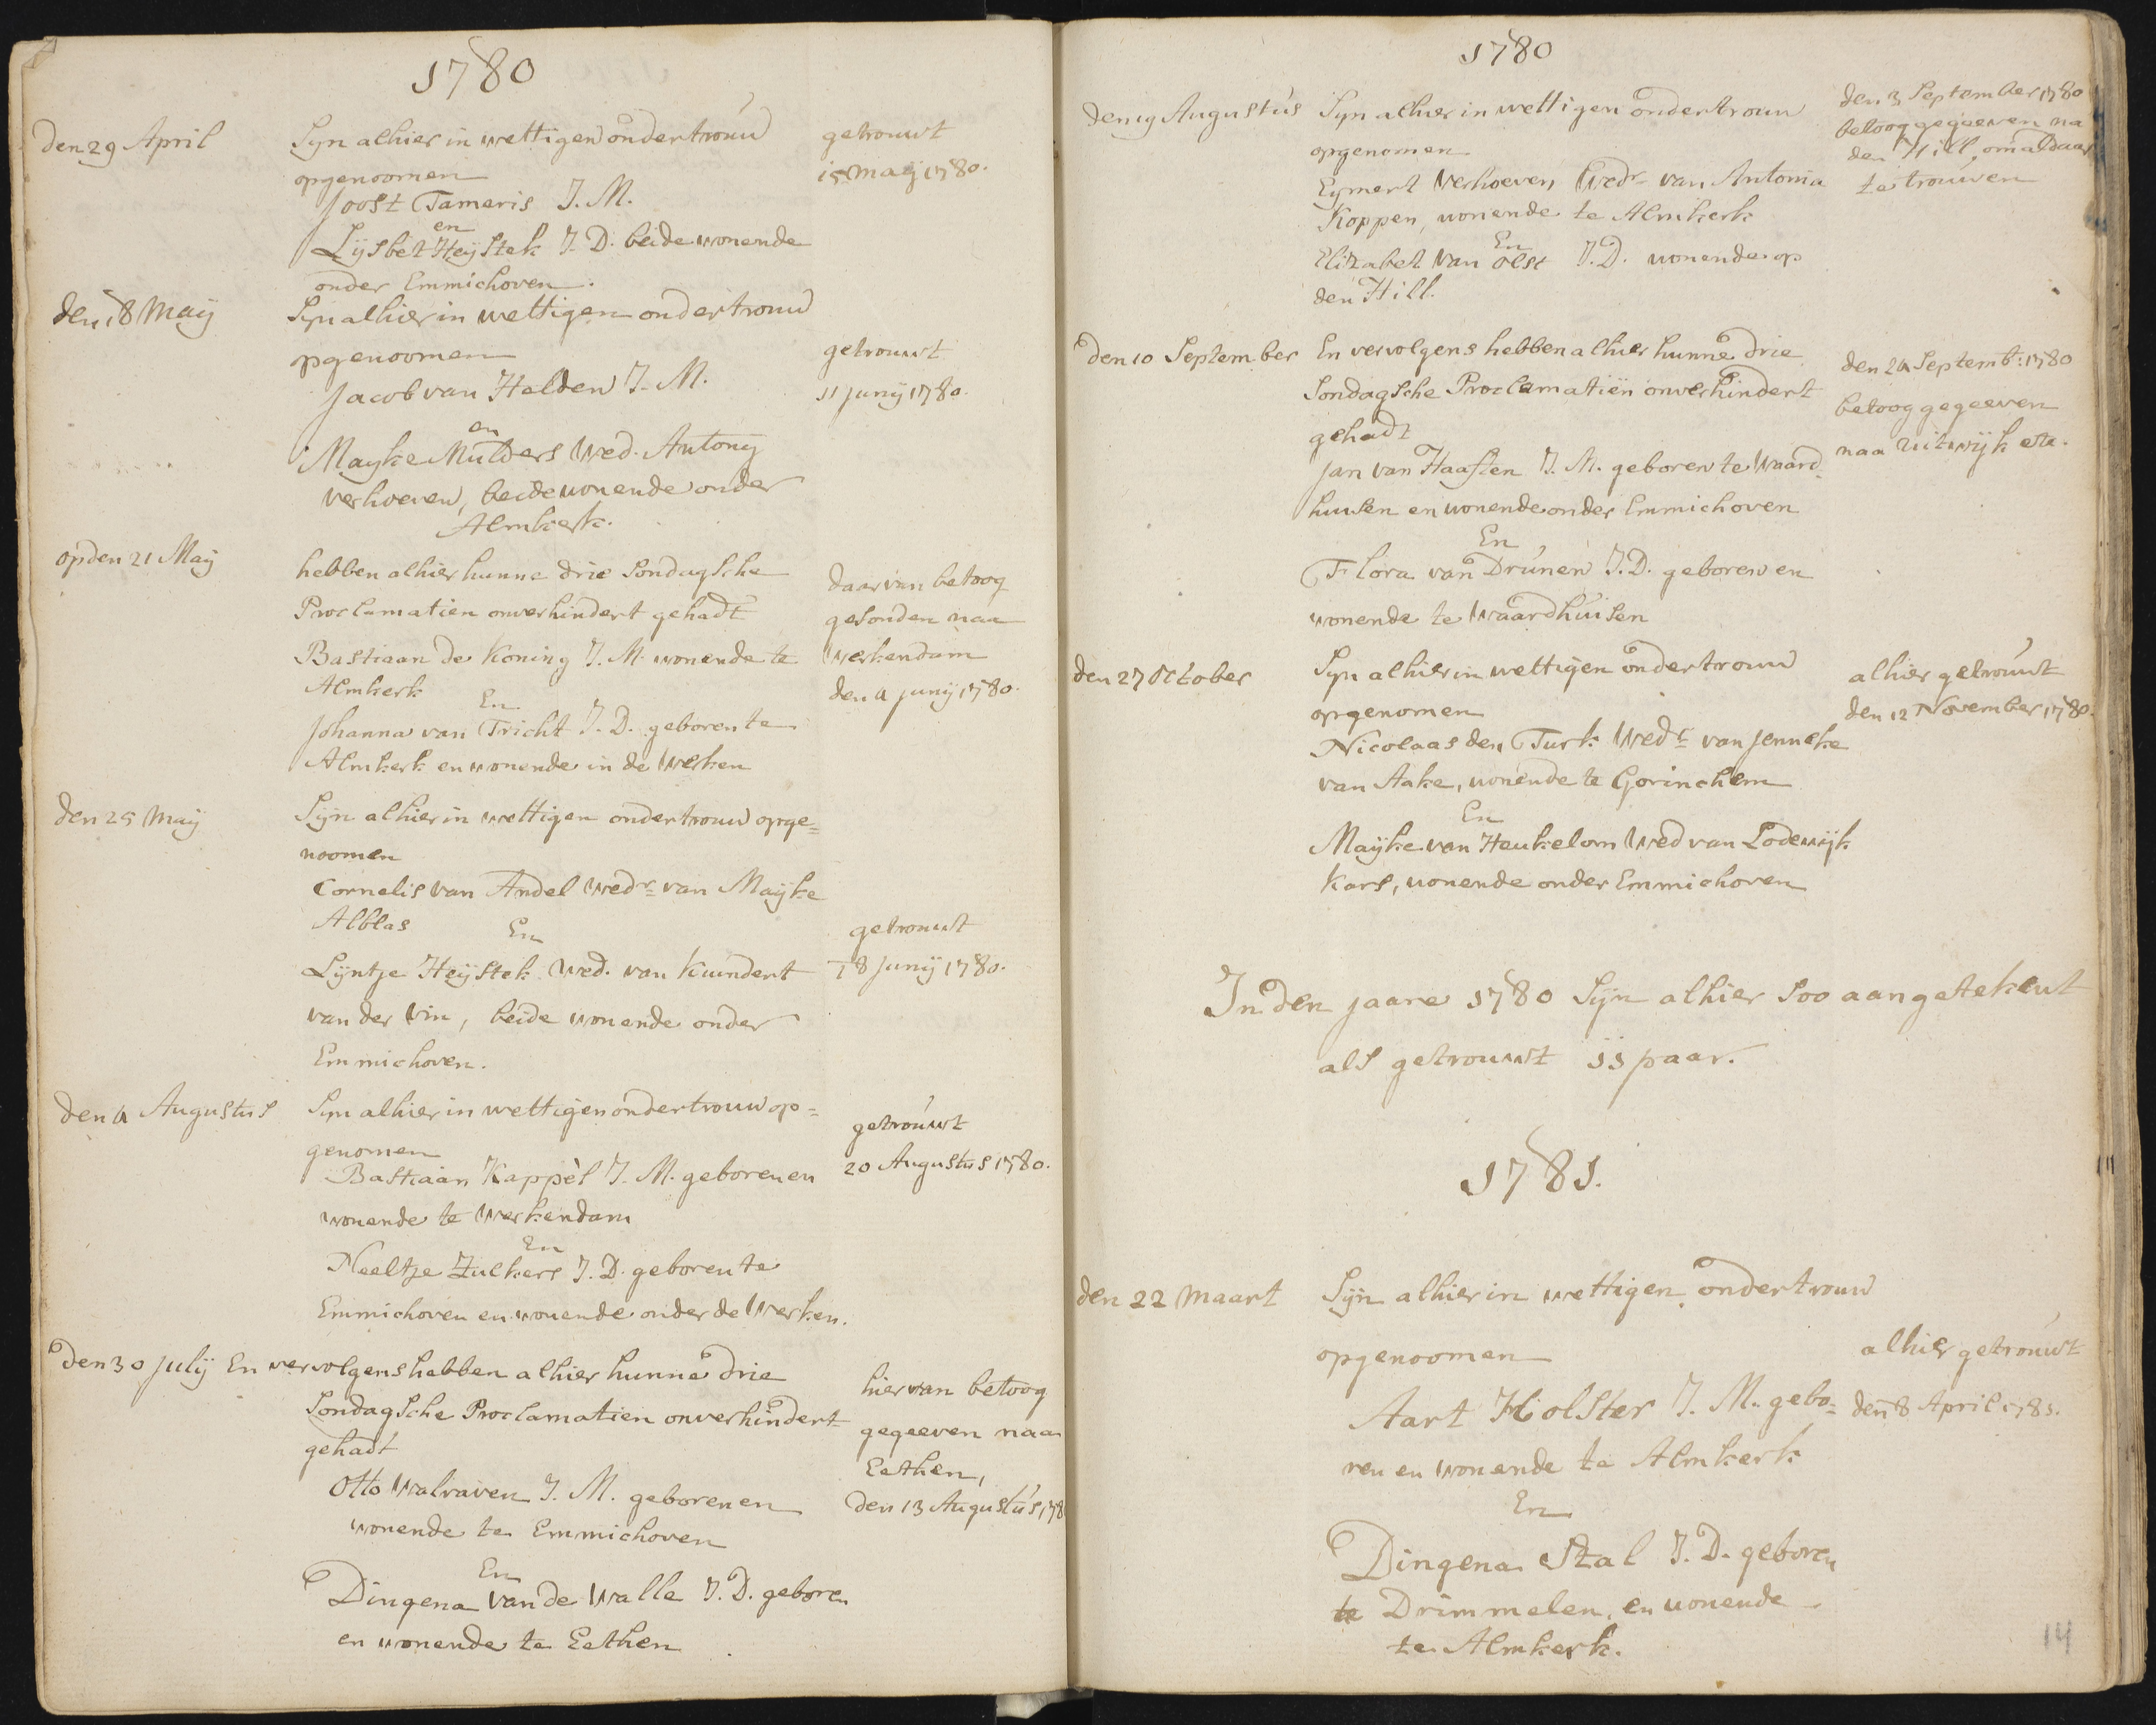 1780
den 29 April
Syn alhier in wettigen ondertrouw
opgenoomen
Joost Tameris J. M.
en
Lijsbet Heystek J. D. beide wonende
onder Emmichoven.
getrouwt
15 maij 1780.
den 18 Maij
Syn alhier in wettigen ondertrouw
opgenoomen
Jacob van Helden J. M.
en
Mayke Mulders Wed. Antony
verhoeven, beide wonende onder
Almkerk.
getrouwt
11 junij 1780.
op den 21 Maij
hebben alhier hunne drie Sondagsche
Proclamatien onverhindert gehadt
Bastiaan de Koning J. M. wonende te
Almkerk
En
Johanna van Tricht J. D. geboren te
Almkerk en wonende in de Werken
daar van betoog
gesonden naa
Werkendam
den 4 junij 1780.
den 25 Maij
Sijn alhier in wettigen ondertrouw opge=
noomen
Cornelis van Andel Wedr van Mayke
Alblas
En
Lijntje Heijstek Wed. van Kuindert
van der Vin, beide wonende onder
Emmichoven.
getrouwt
18 Junij 1780.
den 4 Augustus
Syn alhier in wettigen ondertrouw op=
genomen
Bastiaan Kappèl J. M. geboren en
wonende te Werkendam
En
Neeltje Zuekers J. D. geboren te
Emmichoven en wonende onder de Werken.
getrouwt
20 Augustus 1780.
den 30 Julij En vervolgens hebben alhier hunne drie
Sondagsche Proclamatien onverhindert
gehadt
Otto Walraven J. M. geboren en
wonende te Emmichoven
En
Dingena van de Walle J. D. geboren
en wonende te Eethen
hier van betoog
gegeeven naa
Eethen,
den 13 Augustus 178
1780
den 19 Augustus
Syn alhier in wettigen ondertrouw
opgenomen
Eymert Verhoeven Wedr van Antonia
Koppen, wonende te Almkerk
En
Elizabet van Oest J. D. wonende op
den Hill.
den 3 September 1780
betoog gegeeven na
den Hill, om aldaar
te trouwen
den 10 September
En vervolgens hebben alhier hunne drie
Sondagsche Proclamatiën onverhindert
gehadt
Jan van Haaften J. M. geboren te Waard
huisen en wonende onder Emmichoven
En
Flora van Drunen J. D. geboren en
wonende te Waardhuisen
den 24 Septemb: 1780
betoog gegeeven
naa uitwijk etc.
den 27 October
Syn alhier in wettigen ondertrouw
opgenomen
Nicolaas den Turk Wedr van Jenneke
van Aake, wonende te Gorinchem
En
Mayke van Heukelom Wed van Lodewijk
Kars, wonende onder Emmichoven
alhier getrouwt
den 12 November 1780.
In den jaare 1780 Sijn alhier Soo aangetekent
als getrouwt 11 paar.
1781.
den 22 Maart
Sijn alhier in wettigen ondertrouw
opgenoomen
Aart Holster J. M. gebo=
ren en wonende te Almkerk
En
Dingena Stal J. D. geboren
te Drimmelen, en wonende
te Almkerk.
alhier getrouwt
den 8 April 1781.
14